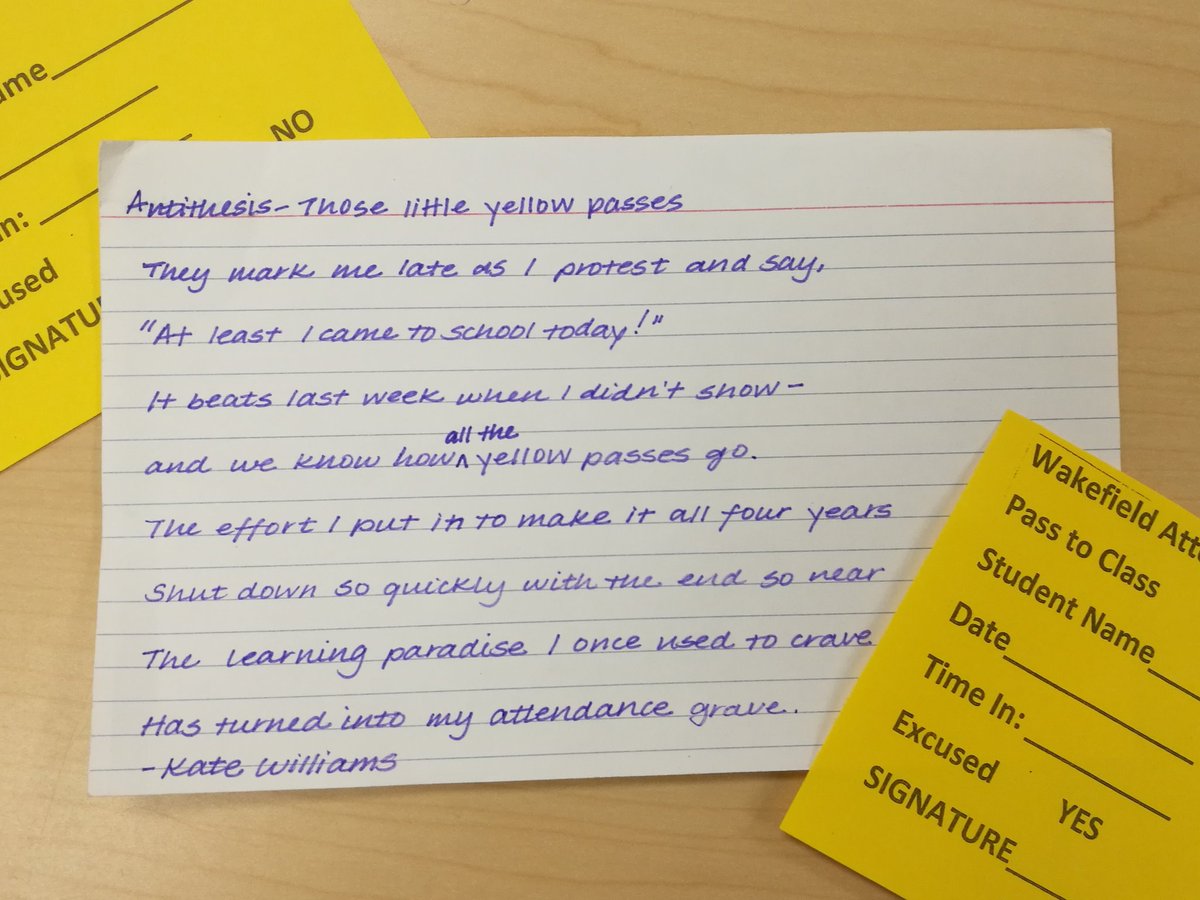 ame
NO
In:
used
SIGNATU
Antithesis - Those little yellow passes
They mark me late as I protest and say,
"At least I came to school today!"
It beats last week when I didn't show -
and we know how all the yellow passes go.
The effort I put in to make it all four years
Shut down so quickly with the end so near
The learning paradise I once used to crave
Has turned into my attendance grave..
- Kate Williams
Wakefield Att
Pass to Class
Student Name
Date
Time In:
Excused YES
SIGNATURE